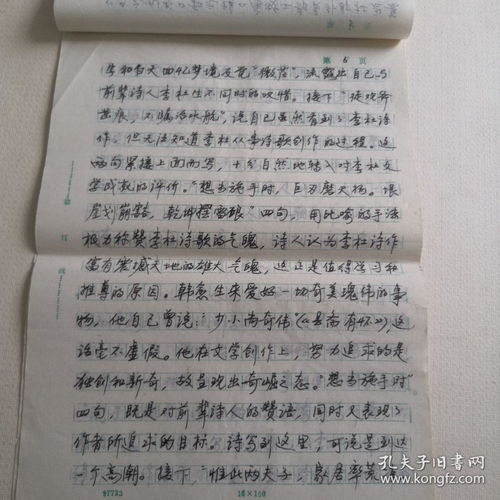 第 5 页
会和白天回忆梦境竟觉“微茫”，流露出自己与
前辈诗人李杜生不同时的叹惜。接下“徒观斧
凿痕，不瞩治水航”，说自己虽然看到了李杜诗
作，但无法知道李杜从事诗歌创作的过程。这
两句紧接上面而写，十分自然地转入对李杜文
学成就的评价。“想当施手时，巨刃磨天扬。垠
崖划崩豁，乾坤摆雷硠”四句，用比喻的手法
极力称赞李杜诗歌的气魄，诗人认为李杜诗作
富有震撼天地的雄大气魄，这正是值得学习和
推尊的原因。韩愈生来爱好一切奇美瑰伟的事
物，他自己曾说：“少小尚奇伟”(《县斋有怀》)，这
话毫不虚假。他在文学创作上，努力追求的是
独创和新奇，故呈现出奇崛之态。“想当施手时”
四句，既是对前辈诗人的赞语，同时又表现了
作者所追求的目标。诗写到这里，可说是到达
一个高潮。接下，“惟此两夫子，家居率荒凉
97723
16×100
孔夫子旧书网